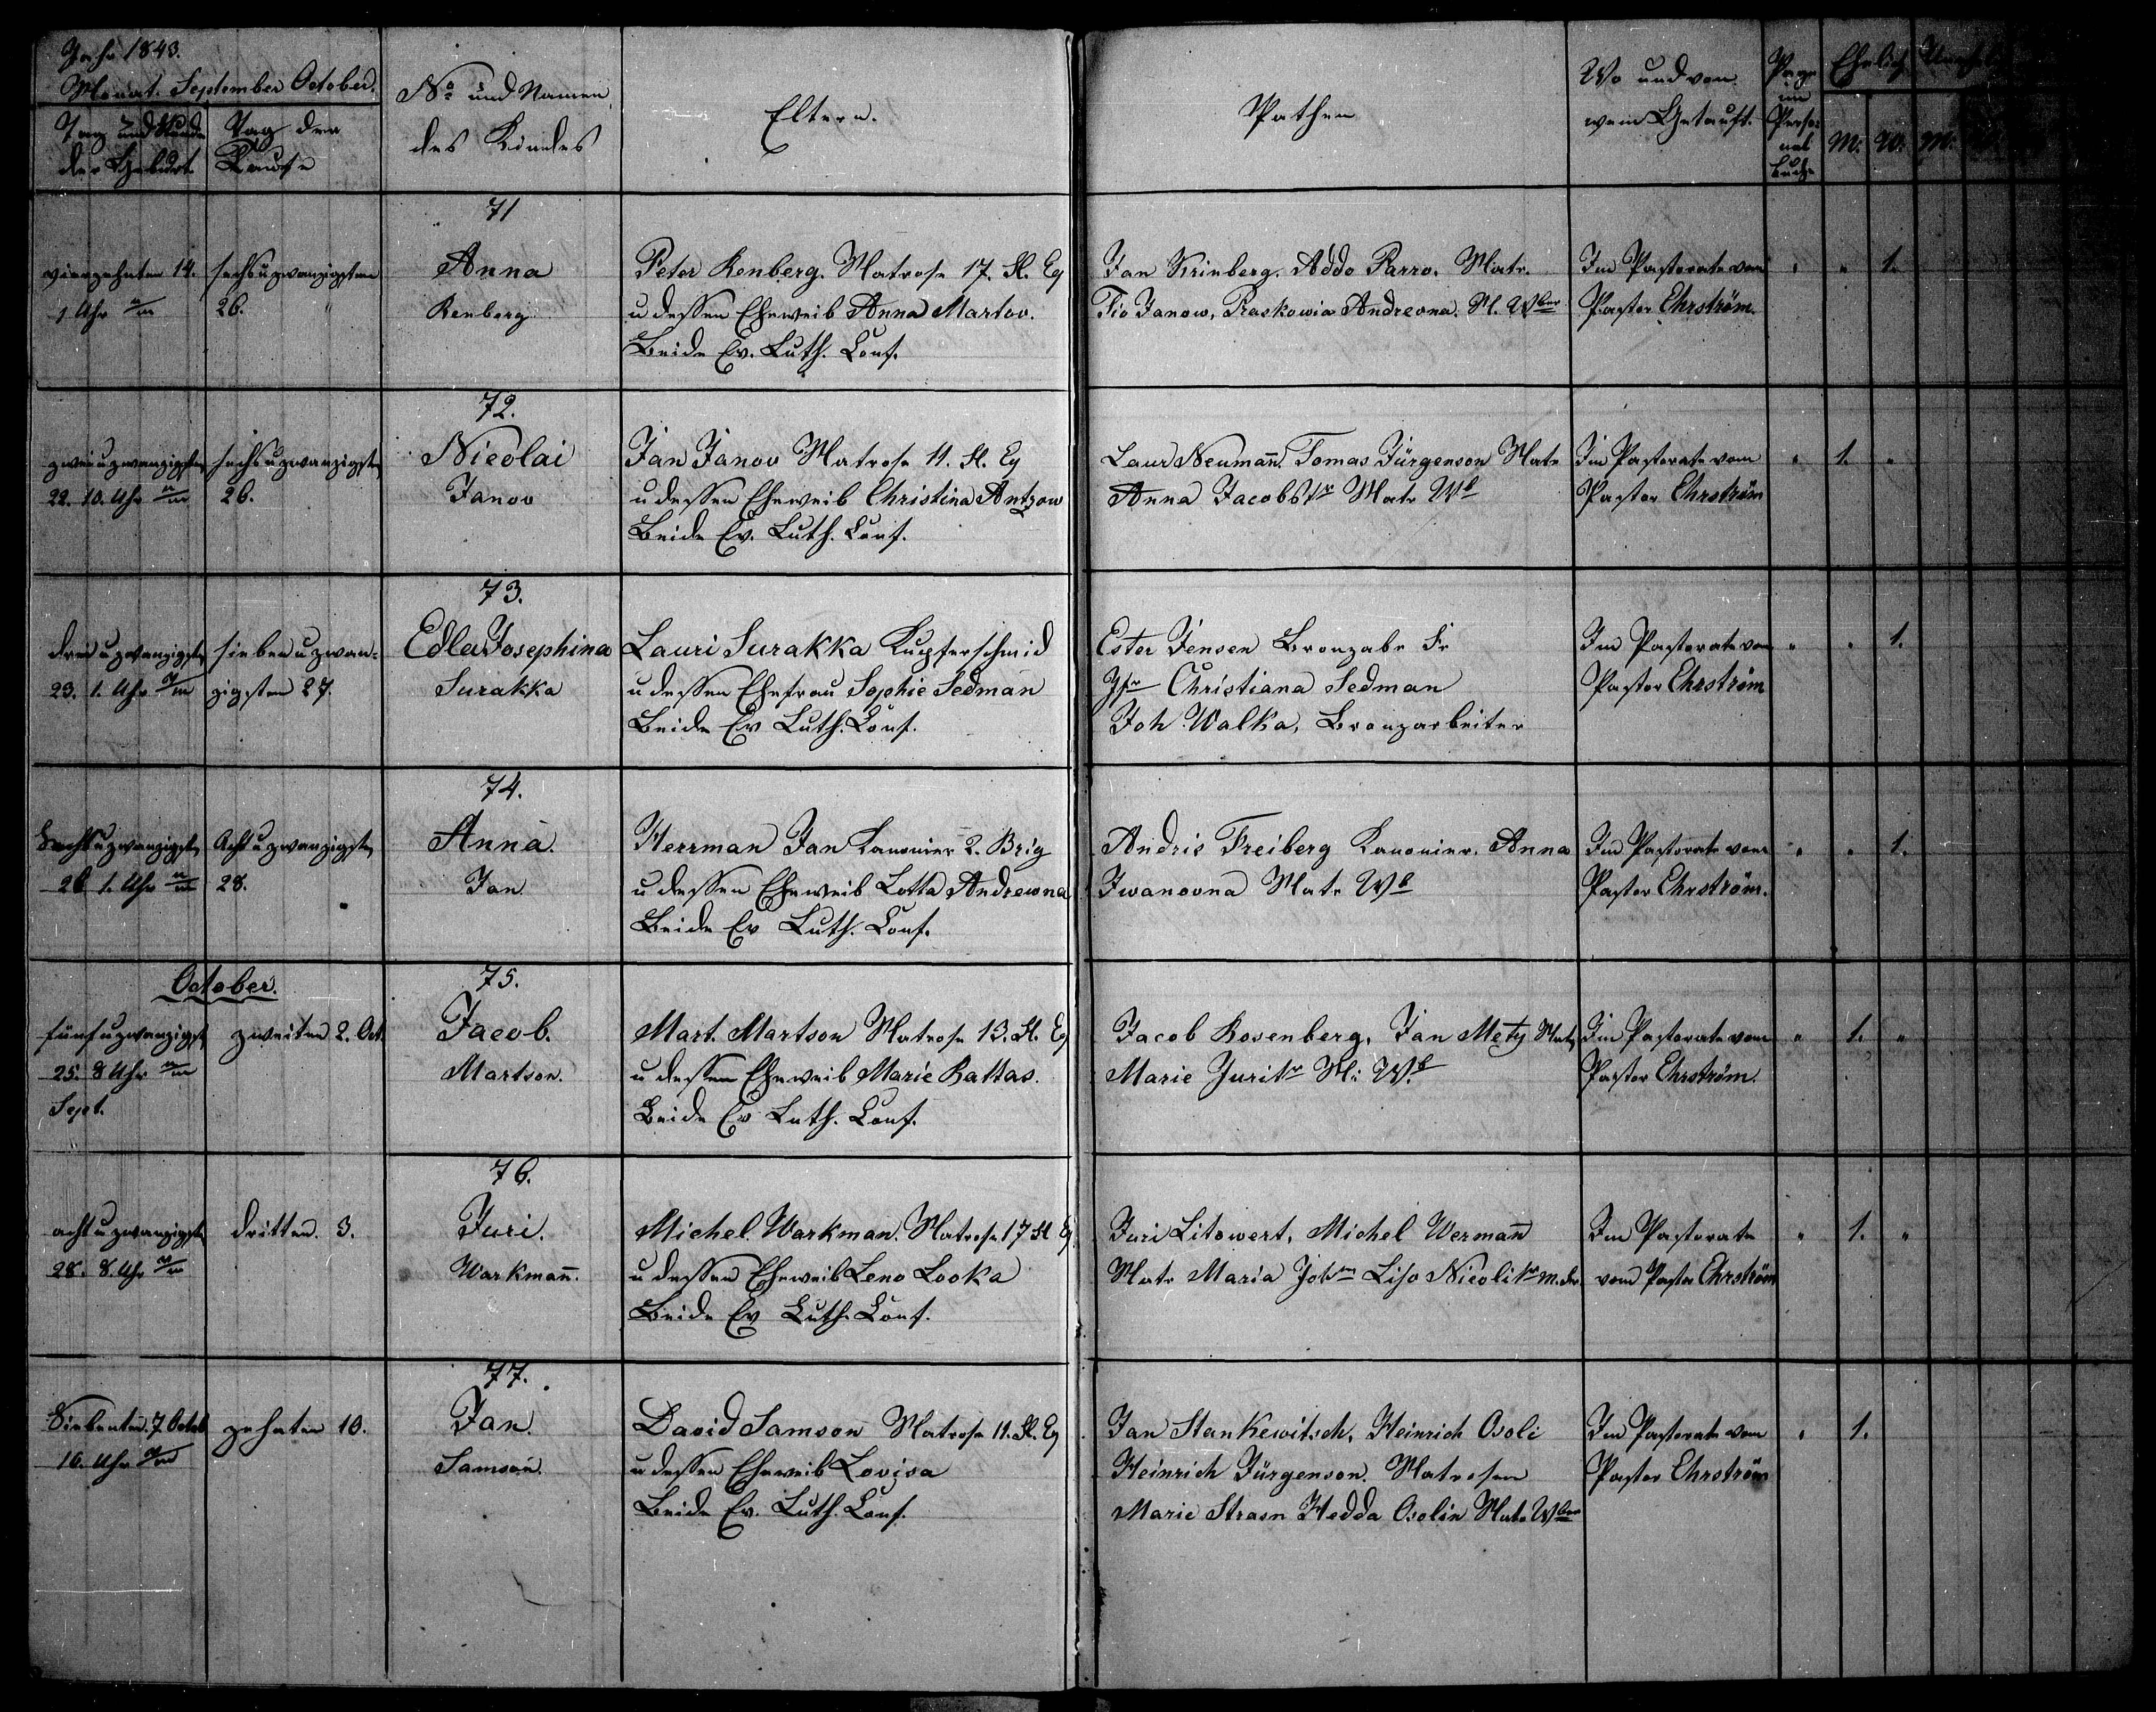 Jahr 1843.
Monat. September October.
Tag und Stunde der Geburt
Tag der Taufe
No und Namen des Kindes
Eltern.
Pathen
Wo und von wem Getauft.
Page im Personalbuche
Ehelich
M. W. M.
71
vierzehnten 14. 1 Uhr
sechsuzwanzigsten 26.
Anna
Renberg
Peter Renberg. Matrose 17. Fl. Eq
u dessen Eheweib Anna Martov.
Beide Ev. Luth. Conf.
Jan Krinberg. Addo Parro. Matr.
Fio Janow, Praskowia Andreona. M. Wber
Im Pastorate vom
Pastor Ehrström.
1.
72.
zweiuzwanzigsten
22. 10. Uhr
sechsuzwanzigsten
26.
Nicolai
Janov
Jan Janov Matrose 11. Fl. Eq
u dessen Eheweib Christina Antzow
Beide Ev. Luth. Conf.
Laur Neumann. Tomas Jürgenson Matr
Anna Jacobstr Matr Wb
Im Pastorate vom
Pastor Ehrström
1.
73.
dreiuzwanzigsten
23. 1. Uhr
siebenuzwan-
zigsten 27.
Edla Josephina
Surakka
Lauri Surakka Kupferschmid
u dessen Ehefrau Sophie Sedman
Beide Ev Luth. Conf.
Ester Jensen Bronzabr Fr
Jfr Christiana Sedman
Joh. Walka, Bronzarbeiter
Im Pastorate vom
Pastor Ehrström
1.
74.
Sechsuzwanzigsten
26 1. Uhr
Achtuzwanzigsten
28.
Anna.
Jan.
Herrman Jan Kanonier 2. Brig
u dessen Eheweib Lotta Andrewna
Beide Ev Luth. Conf.
Andris Freiberg Kanonier. Anna
Iwanovna Matr Wb
Im Pastorate vom
Pastor Ehrström.
1.
October.
75.
fünfuzwanzigst
25. 8 Uhr
Sept.
zweiten 2. Oct.
Jacob.
Martson.
Mart. Martson Matrose 13. Fl. Eq
u dessen Eheweib Marie Rattas.
Beide Ev Luth. Conf.
Jacob Rosenberg, Jan Metz Matr
Marie Juritr M: Wb
Im Pastorate vom
Pastor Ehrström.
1.
76.
achtuzwanzigste
28. 8. Uhr
dritten. 3.
Juri.
Warkmann.
Michel Warkman. Matrose 17 Fl Eq
u dessen Eheweib Leno Looka
Beide Ev Luth. Conf.
Juri Litowert, Michel Wermann
Matr Maria Liso Nicolitr
Im Pastorate
vom Pastor Ehrström
1.
77.
Siebenten. 7. Octob
10. Uhr
zehnten 10.
Jan.
Samson.
David Samson Matrose 11. Fl. Eq
u dessen Eheweib Lovisa
Beide Ev. Luth. Conf.
Jan Stankewitsch, Heinrich Osoli
Heinrich Jürgenson. Matrosen
Marie Strasn Hedda Osolin Matr Wber
Im Pastorate vom
Pastor Ehrström
1.